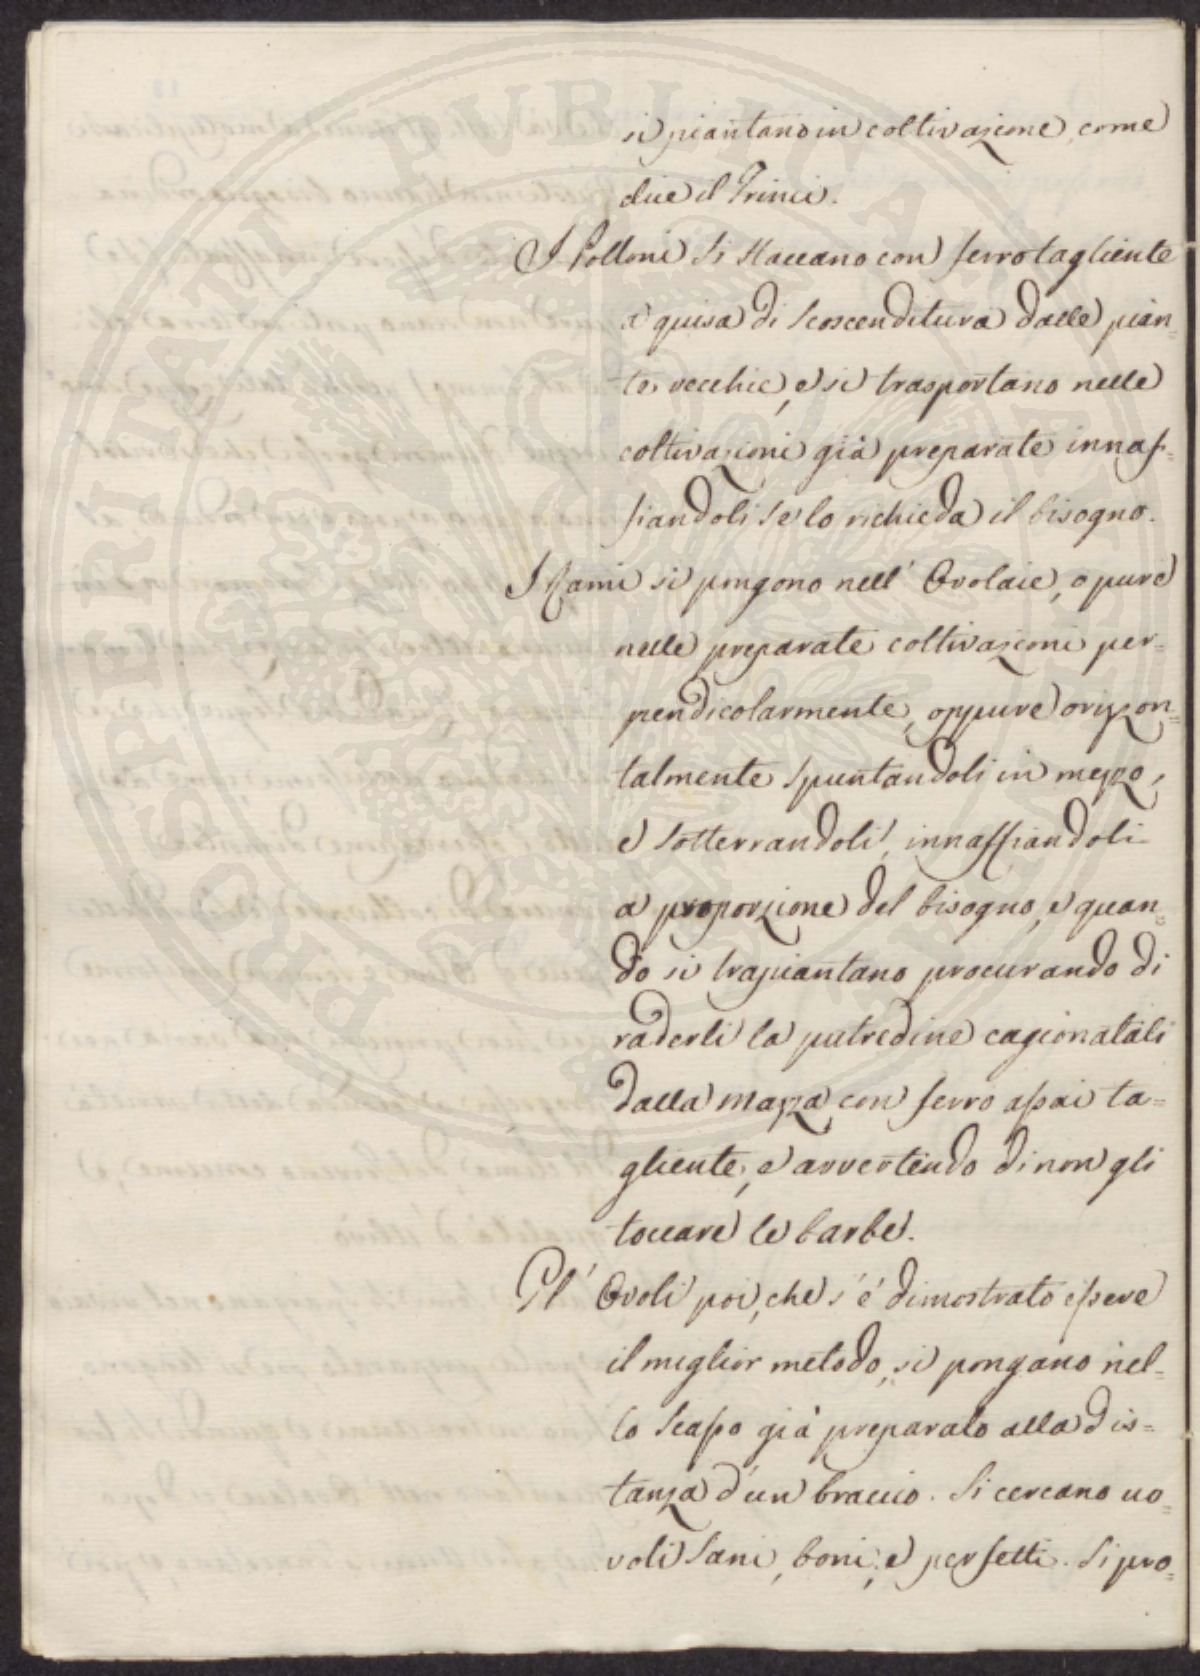 si piantano in coltivazione, come
dice il Trinci.
I Polloni si staccano con ferro tagliente
a guisa di scoscenditura dalle pian=
te vecchie, e si trasportano nelle
coltivazioni già preparate innaf=
fiandoli se lo richieda il bisogno.
I Rami si pongono nell' Ovolaie, opure
nelle preparate coltivazioni per=
pendicolarmente, oppure orizon=
talmente spuntandoli in mezzo,
e sotterrandoli, innaffiandoli
a proporzione del bisogno, e quan=
do si trapiantano procurando di
raderli la putredine cagionatali
dalla mazza con ferro assai ta=
gliente, e avvertendo di non gli
toccare le barbe.
Gl' Ovoli poi, che s' é dimostrato essere
il miglior metodo, si pongano nel=
lo scasso già preparato alla dis=
tanza d'un braccio. Si cercano uo=
voli sani, boni, e perfetti. Si pro=
PROSPERITATI PVBLICAE AVGENDAE